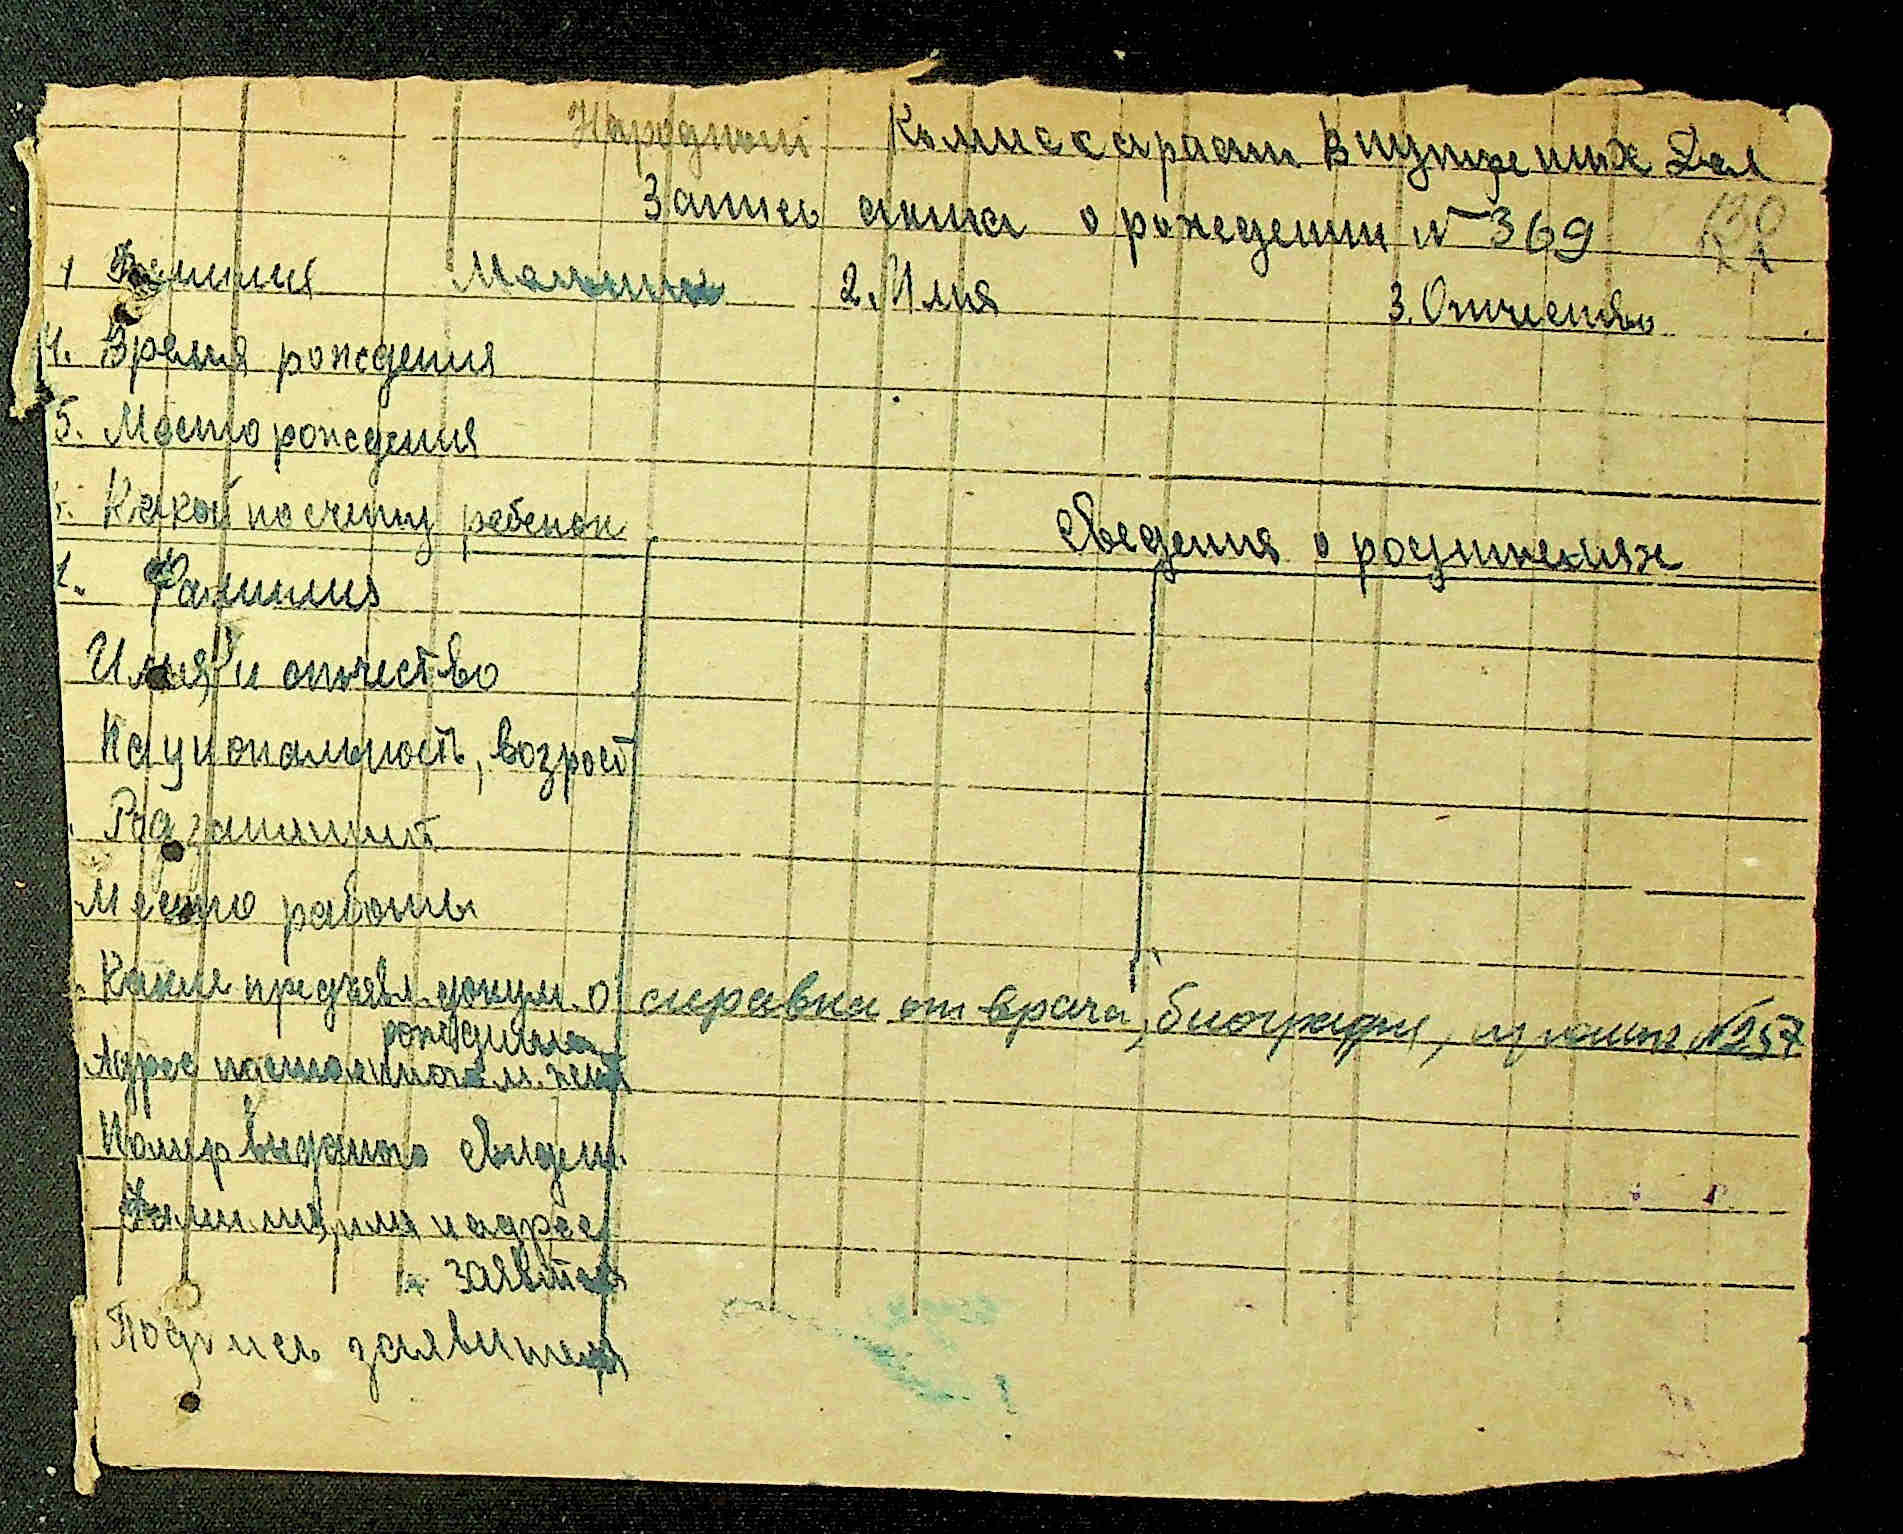 Народный Комиссариат Внутренних Дел
Запись акта о рождении № 369
130
1 Фамилия 2. Имя 3. Отчество
4. Время рождения
5. Место рождения
Какой по счету ребенок
Сведения о родителях
1. Фамилия
Имя и отчество
Национальность, возраст
Род занятий
Место работы
Какие предъявл. докум. о справка от врача, биография, № 257
рождении
Адрес постоянного м. жит
Номер выданого свидет.
Фамилия, имя и адрес
заявителя
Подпись заявителя